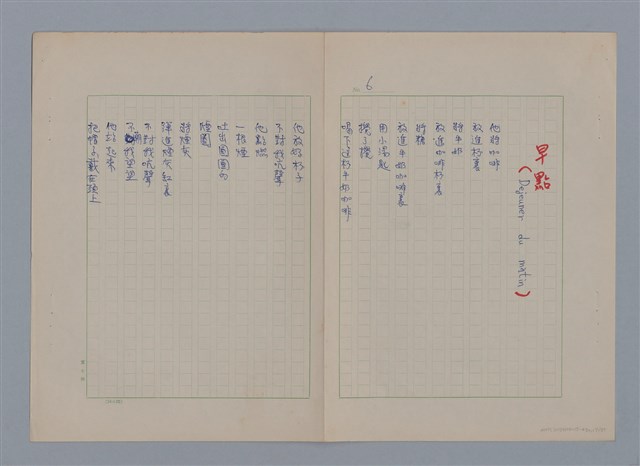 6
早點
(Dejeuner du matin)
他將咖啡
放進杯裏
將牛奶
放進咖啡杯裏
將糖
放進牛奶咖啡裏
用小湯匙
攪了攪
喝下這杯牛奶咖啡
他放好杯子
不對我吭聲
他點燃
一枝煙
吐出圈圈的
煙圈
將煙灰
彈進煙灰缸裏
不對我吭聲
不朝我望望
他站起來
把帽子戴在頭上